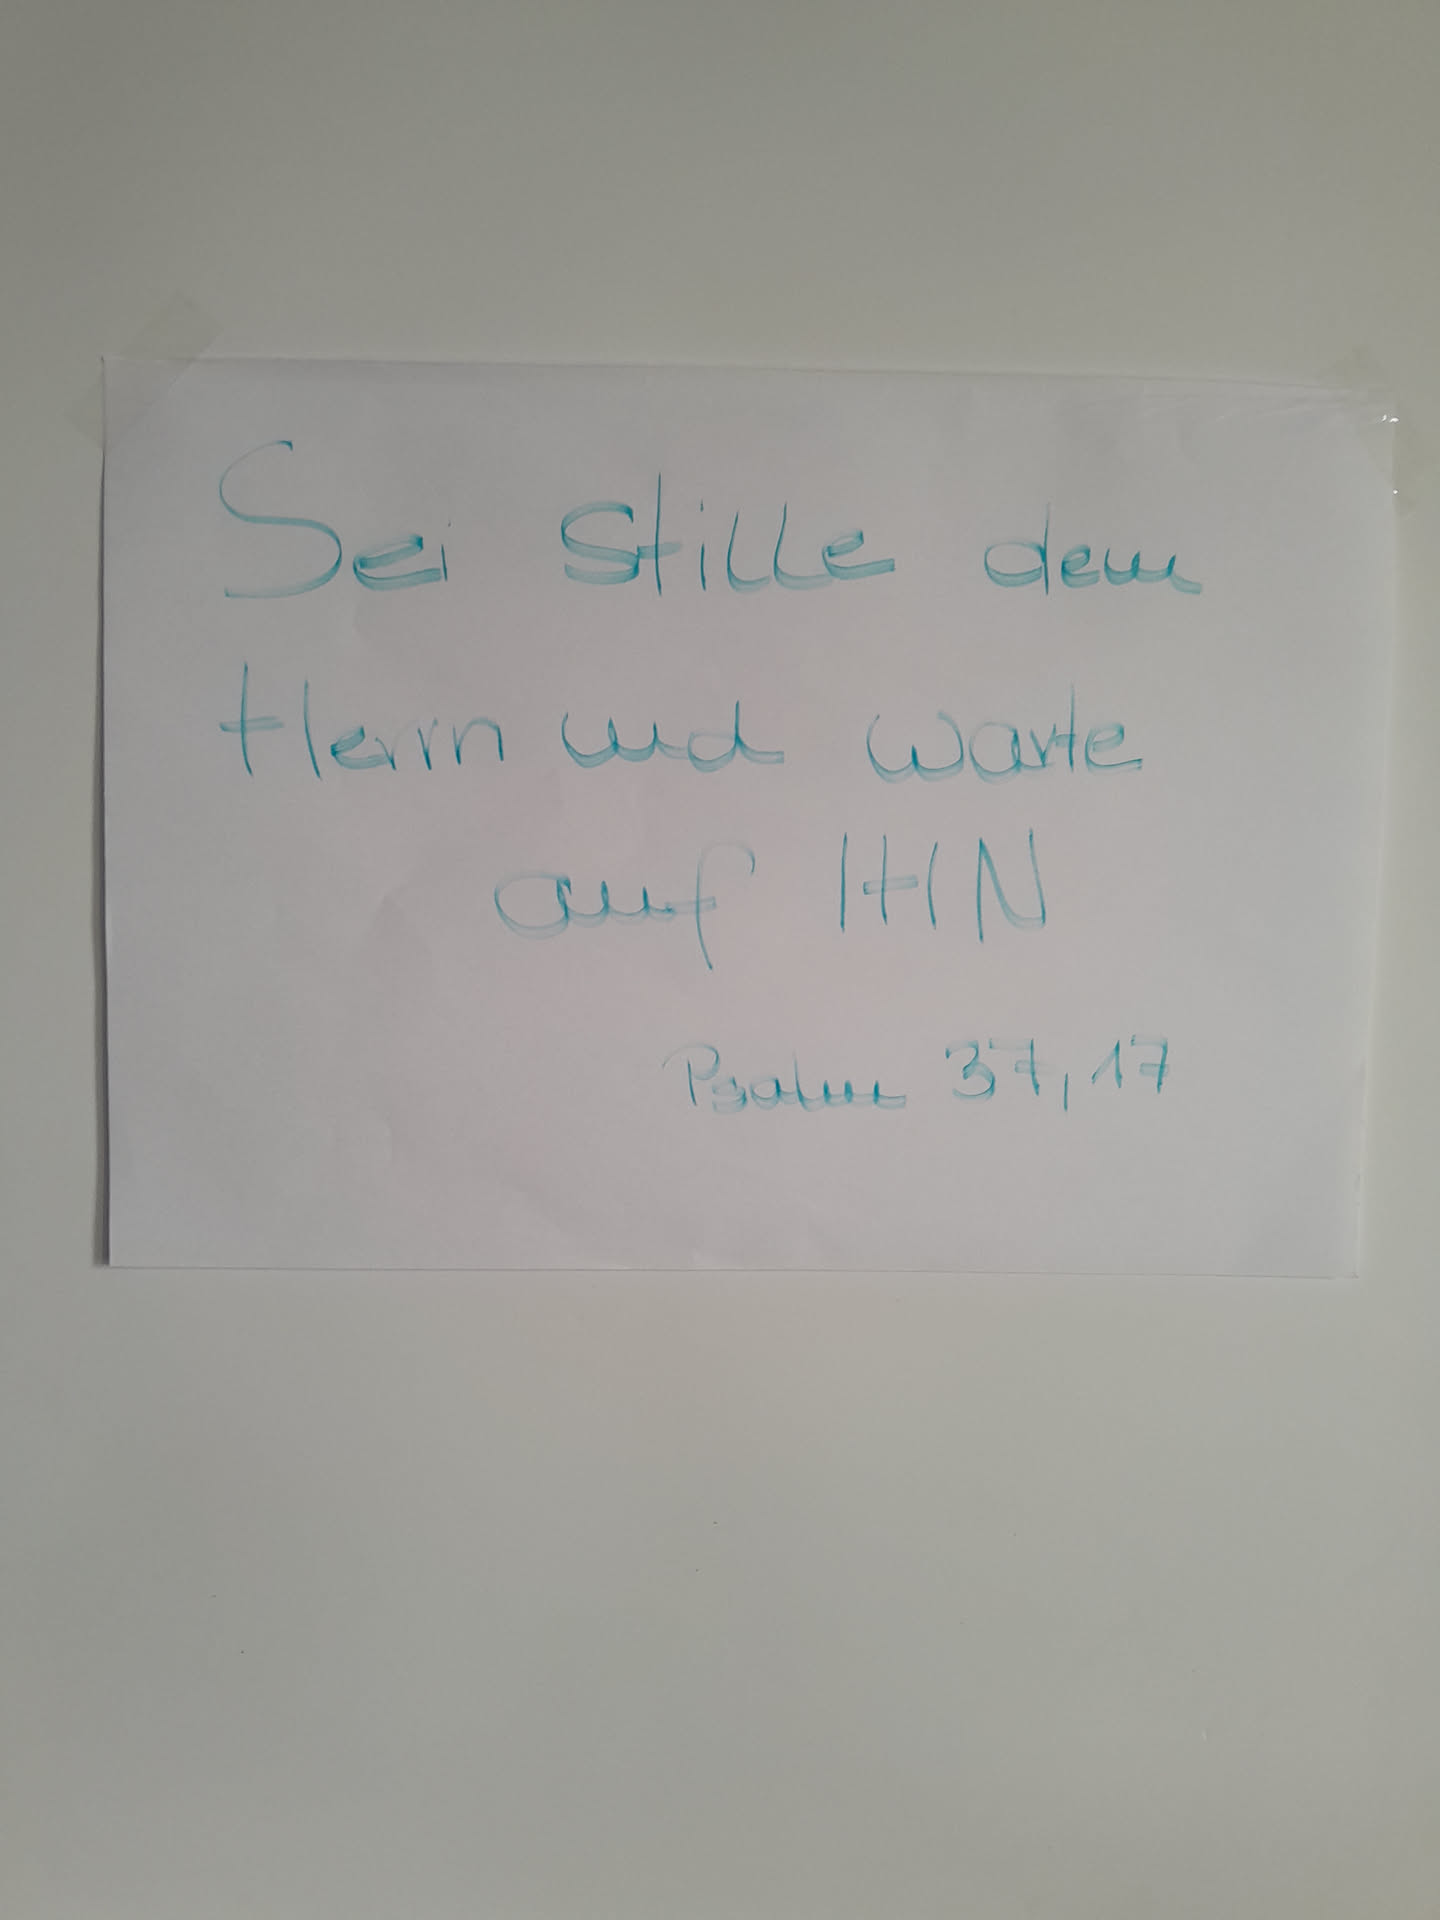 Sei stille dem
Herrn und warte
auf IHN
Psalm 37,17